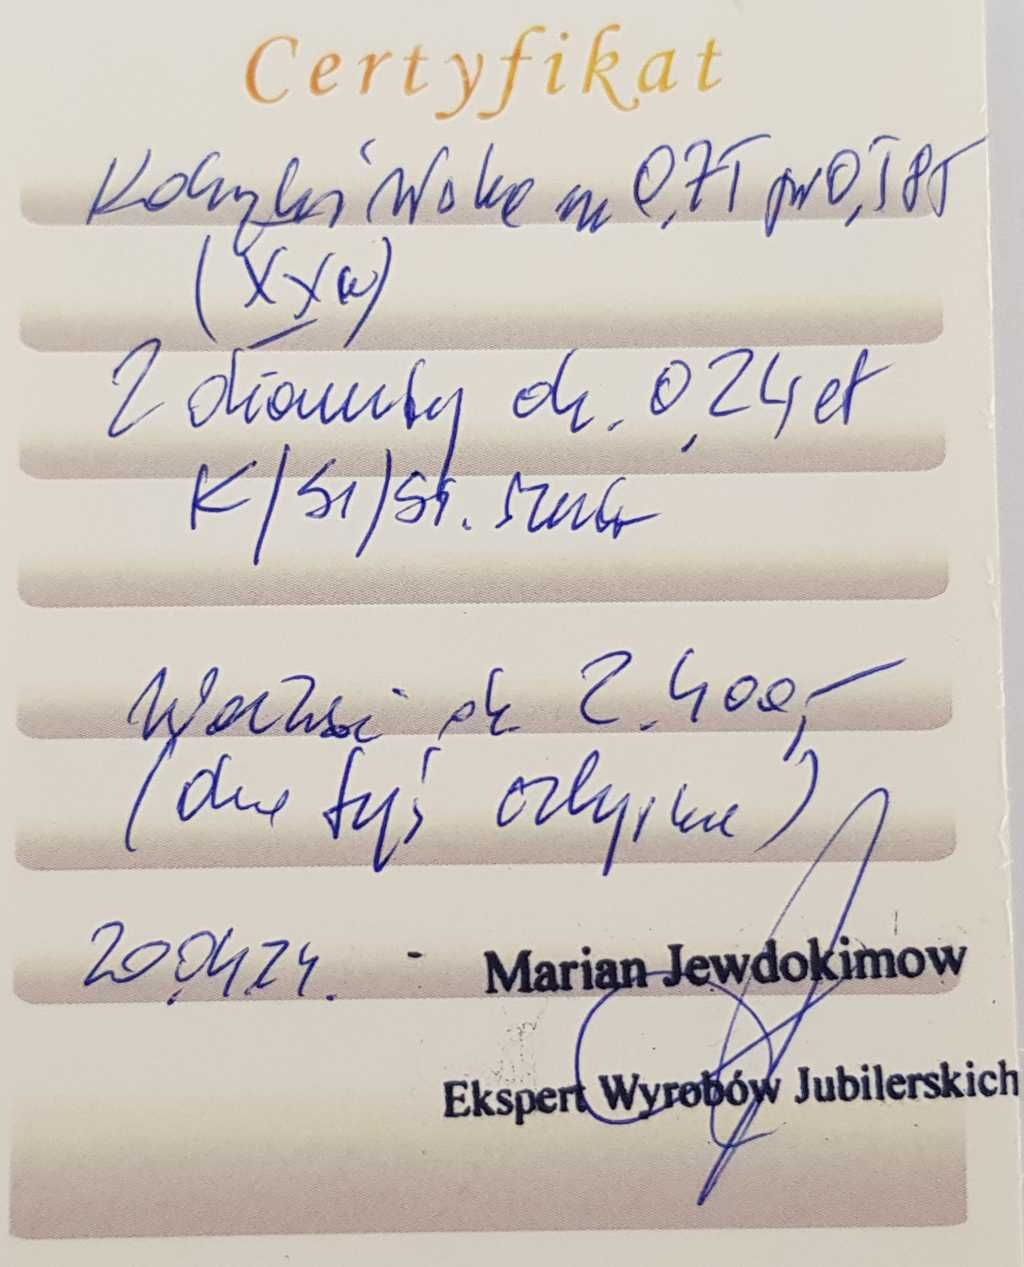 Certyfikat
Kolczyki 0,75 pr 0,585
(XXw)
2 diamenty ok. 0,24 ct
K/SI/
Wartość ok. 2.400,-
(dwa tyś czterysta)
20.04.24.
Marian Jewdokimow
Ekspert Wyrobów Jubilerskich